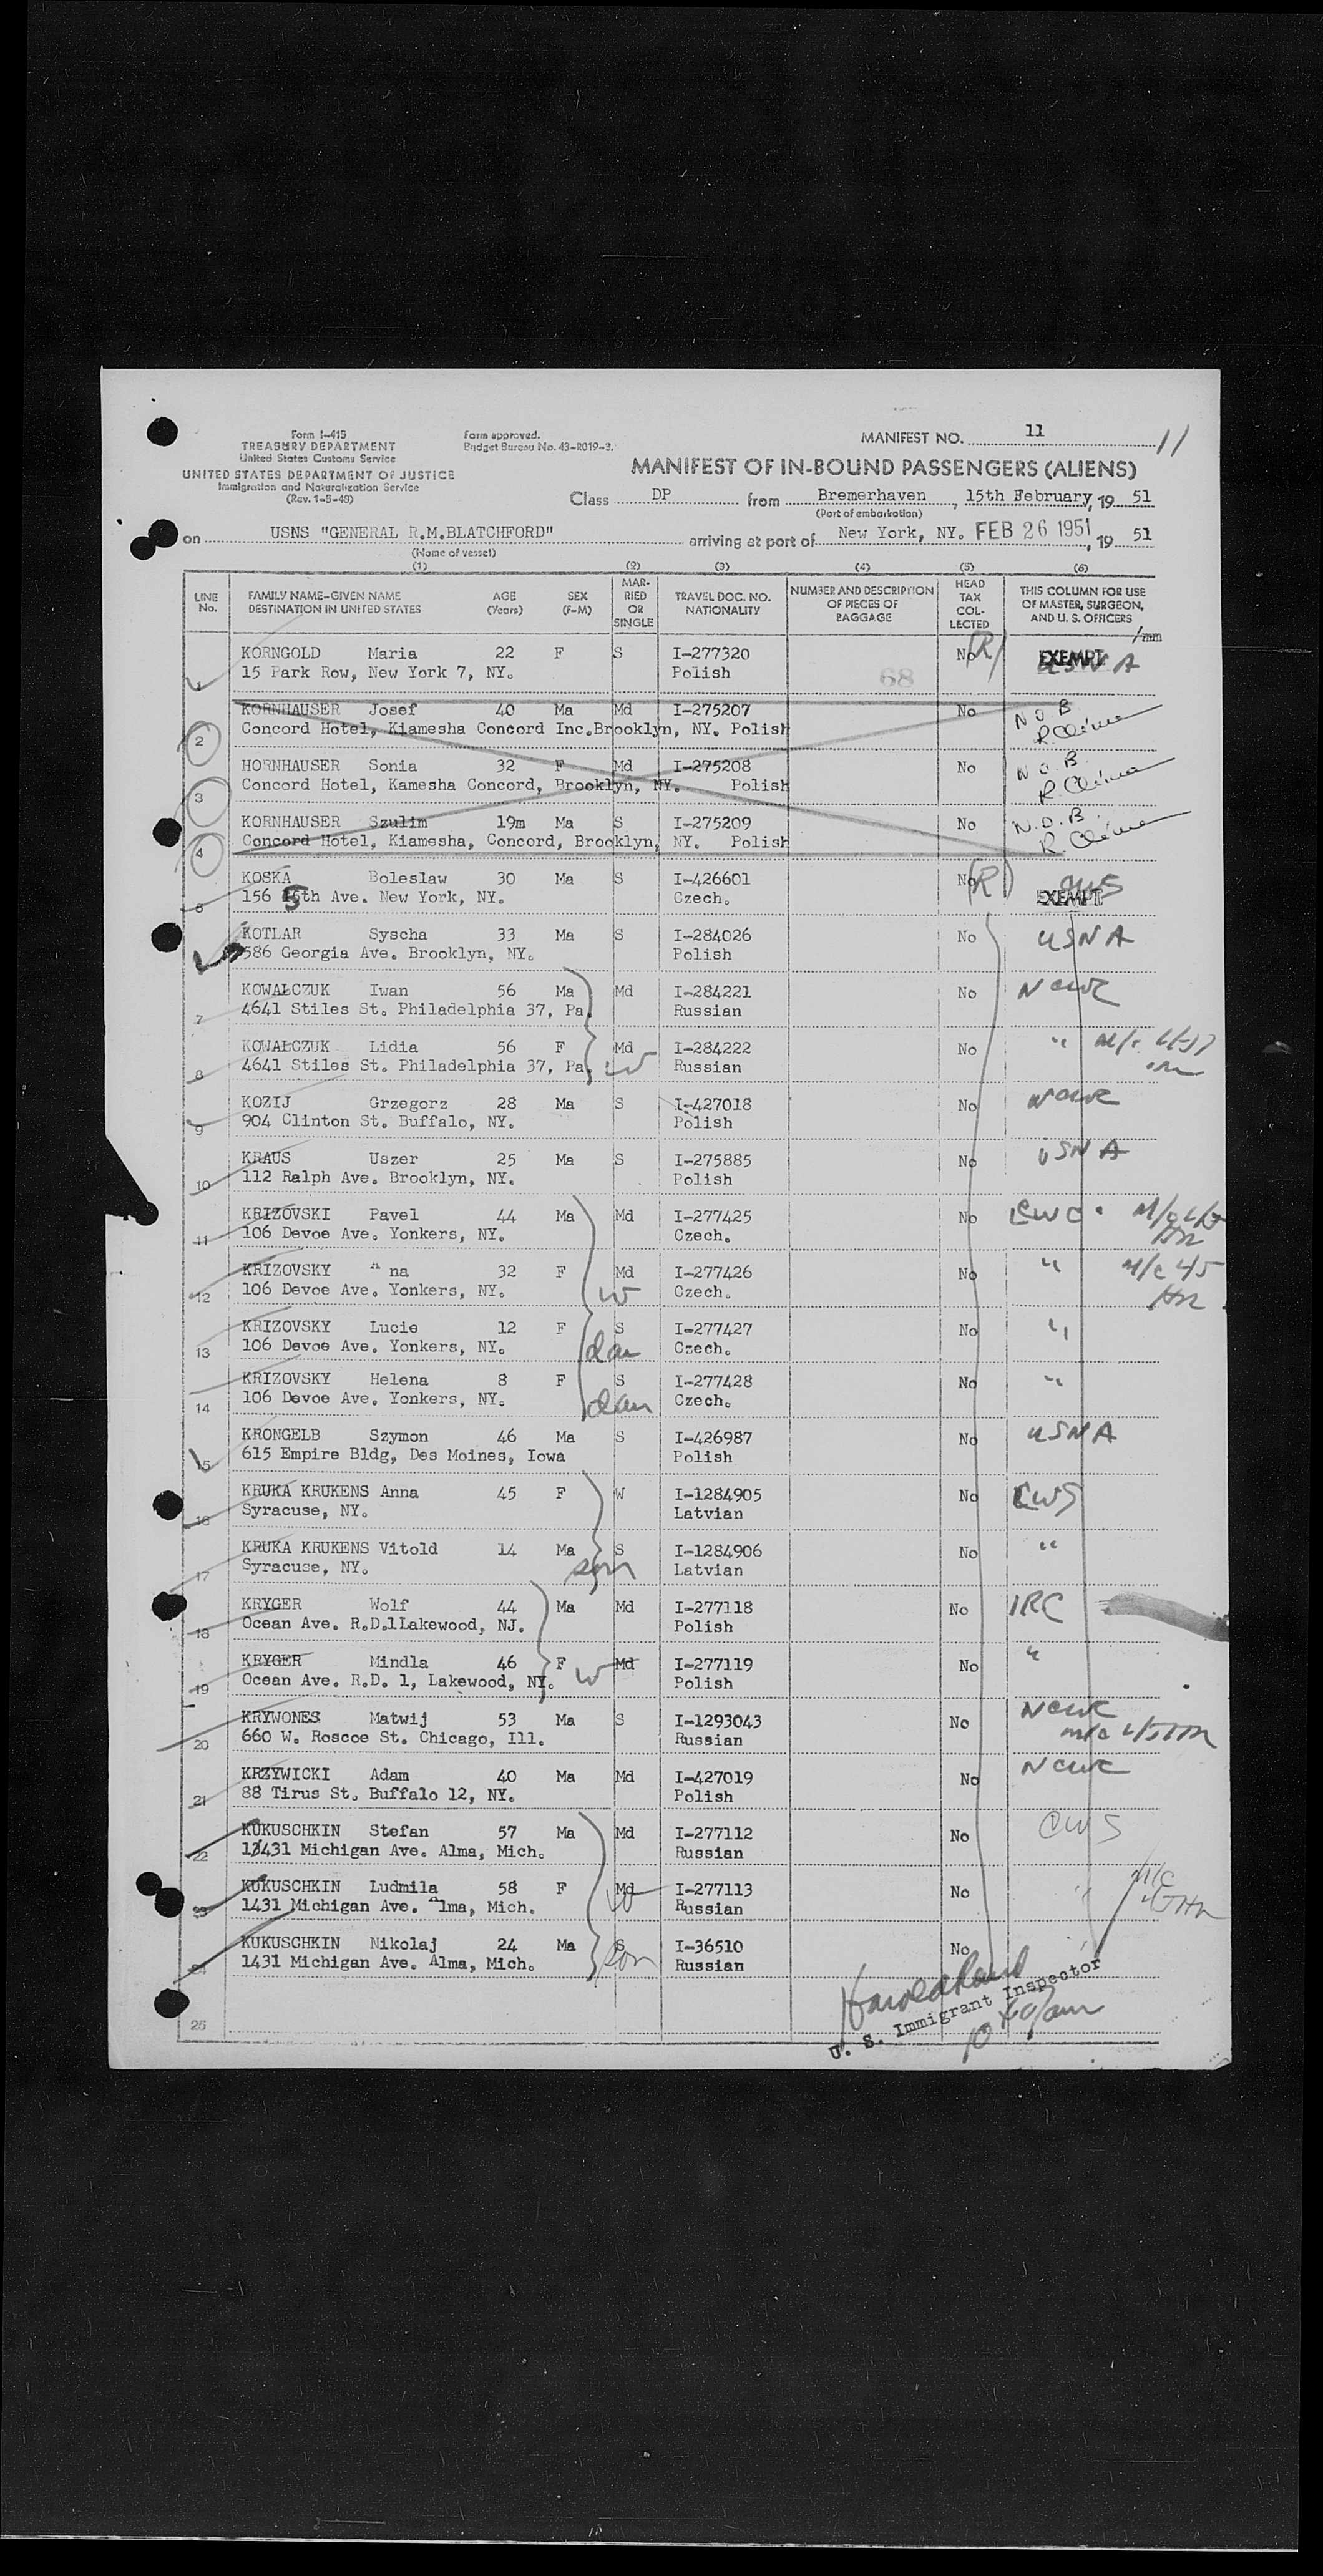 Form I-415
TREASURY DEPARTMENT
United States Customs Service
UNITED STATES DEPARTMENT OF JUSTICE
Immigration and Naturalization Service
(Rev. 1-5-49)
Form approved.
Budget Bureau No. 43-R019-3.
MANIFEST NO. 11
11
MANIFEST OF IN-BOUND PASSENGERS (ALIENS)
Class DP from Bremerhaven, 15th February, 19 51
(Port of embarkation)
on USNS "GENERAL R.M.BLATCHFORD" arriving at port of New York, NY. FEB 26 1951, 19 51
(Name of vessel)
(1) (2) (3) (4) (5) (6)
LINE No. FAMILY NAME-GIVEN NAME DESTINATION IN UNITED STATES AGE (Years) SEX (F-M) MARRIED OR SINGLE TRAVEL DOC. NO. NATIONALITY NUMBER AND DESCRIPTION OF PIECES OF BAGGAGE HEAD TAX COLLECTED THIS COLUMN FOR USE OF MASTER, SURGEON, AND U. S. OFFICERS
1 KORNGOLD Maria 22 F S I-277320 No (R) EXEMPT USNA
15 Park Row, New York 7, NY. Polish 68
2 KORNHAUSER Josef 40 Ma Md I-275207 No N O B
Concord Hotel, Kiamesha Concord Inc.Brooklyn, NY. Polish
3 HORNHAUSER Sonia 32 F Md I-275208 No N.O.B.
Concord Hotel, Kamesha Concord, Brooklyn, NY. Polish
4 KORNHAUSER Szulim 19m Ma S I-275209 No N.O.B.
Concord Hotel, Kiamesha, Concord, Brooklyn, NY. Polish
5 KOSKA Boleslaw 30 Ma S I-426601 No (R) EXEMPT
156 5th Ave. New York, NY. Czech.
KOTLAR Syscha 33 Ma S I-284026 No USNA
586 Georgia Ave. Brooklyn, NY. Polish
7 KOWALCZUK Iwan 56 Ma Md I-284221 No NCWC
4641 Stiles St. Philadelphia 37, Pa. Russian
8 KOWALCZUK Lidia 56 F Md I-284222 No "
4641 Stiles St. Philadelphia 37, Pa. W Russian
9 KOZIJ Grzegorz 28 Ma S I-427018 No NCWC
904 Clinton St. Buffalo, NY. Polish
10 KRAUS Uszer 25 Ma S I-275885 No USNA
112 Ralph Ave. Brooklyn, NY. Polish
11 KRIZOVSKI Pavel 44 Ma Md I-277425 No
106 Devoe Ave. Yonkers, NY. Czech.
12 KRIZOVSKY A na 32 F Md I-277426 No " M/c 4/5
106 Devoe Ave. Yonkers, NY. W Czech.
13 KRIZOVSKY Lucie 12 F S I-277427 No "
106 Devoe Ave. Yonkers, NY. dau Czech.
14 KRIZOVSKY Helena 8 F S I-277428 No "
106 Devoe Ave. Yonkers, NY. dau Czech.
15 KRONGELB Szymon 46 Ma S I-426987 No USNA
615 Empire Bldg, Des Moines, Iowa Polish
16 KRUKA KRUKENS Anna 45 F W I-1284905 No CWS
Syracuse, NY. Latvian
17 KRUKA KRUKENS Vitold 14 Ma S I-1284906 No "
Syracuse, NY. son Latvian
18 KRYGER Wolf 44 Ma Md I-277118 No IRC
Ocean Ave. R.D.1Lakewood, NJ. Polish
19 KRYGER Mindla 46 F W Md I-277119 No "
Ocean Ave. R.D. 1, Lakewood, NY. Polish
20 KRYWONES Matwij 53 Ma S I-1293043 No NCWC
660 W. Roscoe St. Chicago, Ill. Russian
21 KRZYWICKI Adam 40 Ma Md I-427019 No NCWC
88 Tirus St. Buffalo 12, NY. Polish
22 KUKUSCHKIN Stefan 57 Ma Md I-277112 No CWS
13431 Michigan Ave. Alma, Mich. Russian
23 KUKUSCHKIN Ludmila 58 F Md I-277113 No "
1431 Michigan Ave. Alma, Mich. W Russian
24 KUKUSCHKIN Nikolaj 24 Ma S I-36510 No
1431 Michigan Ave. Alma, Mich. son Russian
U. S. Immigrant Inspector
25